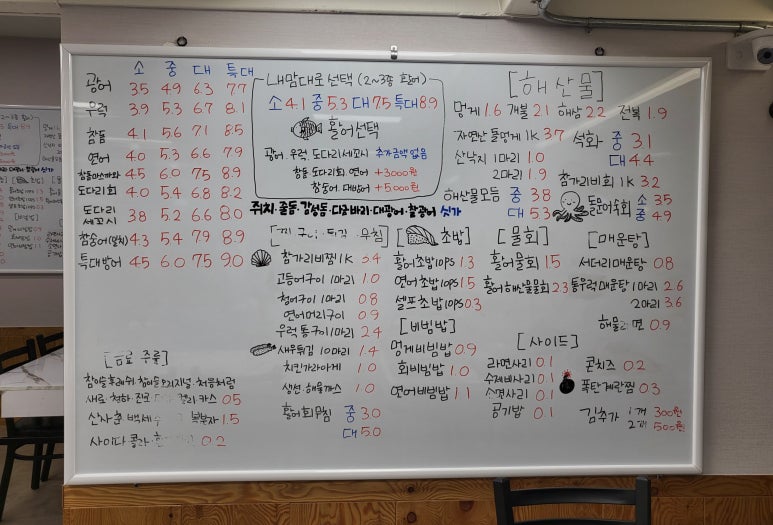 소 중 대 특대
광어 3.5 4.9 6.3 7.7
우럭 3.9 5.3 6.7 8.1
참돔 4.1 5.6 7.1 8.5
연어 4.0 5.3 6.6 7.9
참돔마스까와 4.5 6.0 7.5 8.9
도다리회 4.0 5.4 6.8 8.2
도다리
세꼬시 3.8 5.2 6.6 8.0
참숭어(밀치) 4.3 5.4 7.9 8.9
특대방어 4.5 6.0 7.5 9.0
내맘대로 선택 (2~3종 활어)
소 4.1 중 5.3 대 7.5 특대 8.9
활어선택
광어. 우럭. 도다리세꼬시 추가금액 없음
참돔 도다리회. 연어 +3000원
참숭어. 대방어 +5000원
쥐치·줄돔·감성돔·다금바리·대광어·찰광어 싯가
[해산물]
멍게 1.6 개불 2.1 해삼 2.2 전복 1.9
자연산 돌멍게 1K 3.7 석화 중 3.1
대 4.4
산낙지 1마리 1.0
2마리 1.9
참가리비회 1K 3.2
해산물모듬 중 3.8
대 5.3
돌문어숙회 소 3.5
중 4.9
참가리비찜 1K
고등어구이 1마리 1.0
청어구이 1마리 0.8
연어머리구이 0.9
우럭통구이 1마리 2.4
새우튀김 10마리 1.4
치킨가라아게 1.0
생선·해물까스 1.0
활어회무침 중 3.0
대 5.0
[초밥]
활어초밥 10PS 1.3
연어초밥 10PS 1.5
셀프초밥 10PS 0.3
[비빔밥]
멍게비빔밥 0.9
회비빔밥 1.0
연어비빔밥 1.1
[물회]
활어물회 1.5
활어해산물물회 2.3
[매운탕]
서더리매운탕 0.8
통우럭매운탕 1마리 2.6
2마리 3.6
해물라면 0.9
[사이드]
라면사리 0.1
수제비사리 0.1
소면사리 0.1
공기밥 0.1
콘치즈 0.2
폭탄계란찜 0.3
김추가 1개 300원
2개 500원
[음료 주류]
참이슬후레쉬·참이슬오리지널·처음처럼
새로·청하·진로 카스 0.5
산사춘·백세주 복분자 1.5
사이다·콜라 0.2